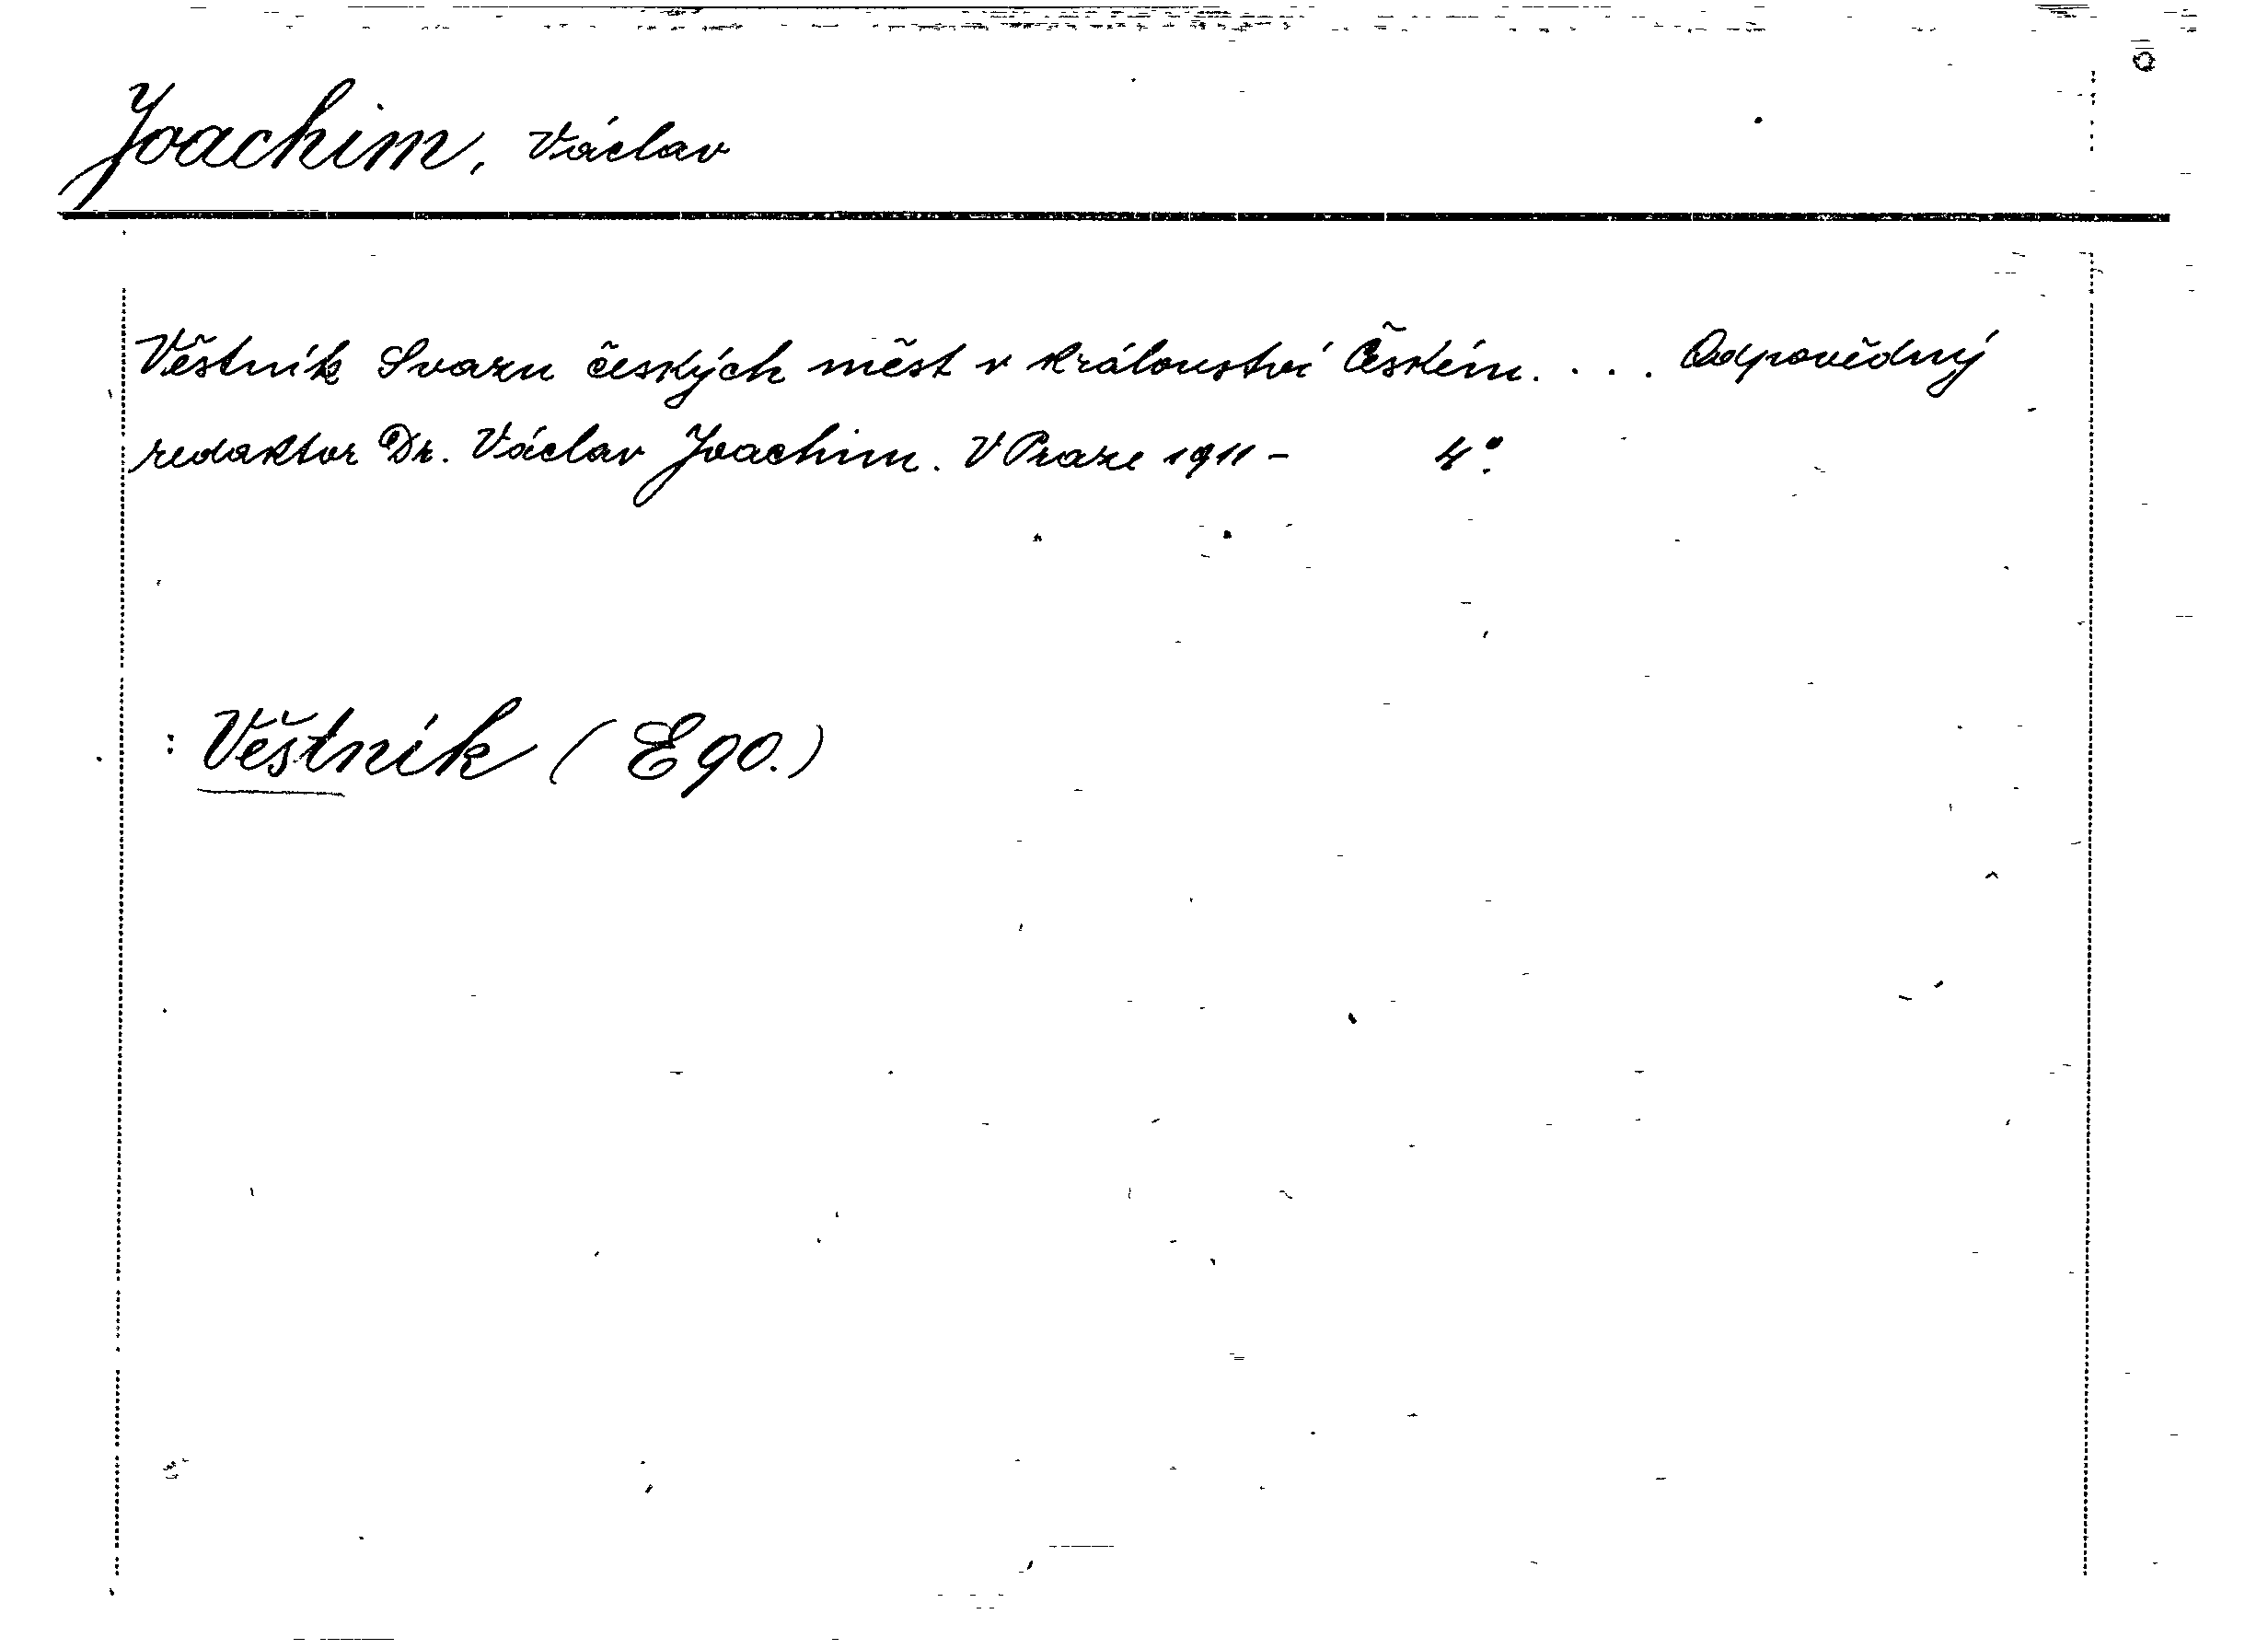 Joachim, Václav
Věstník Svazu českých měst v království Českém. . . . Odpovědný
redaktor Dr. Václav Joachim. V Praze 1911 - 4°.
: Věstník (E 90.)